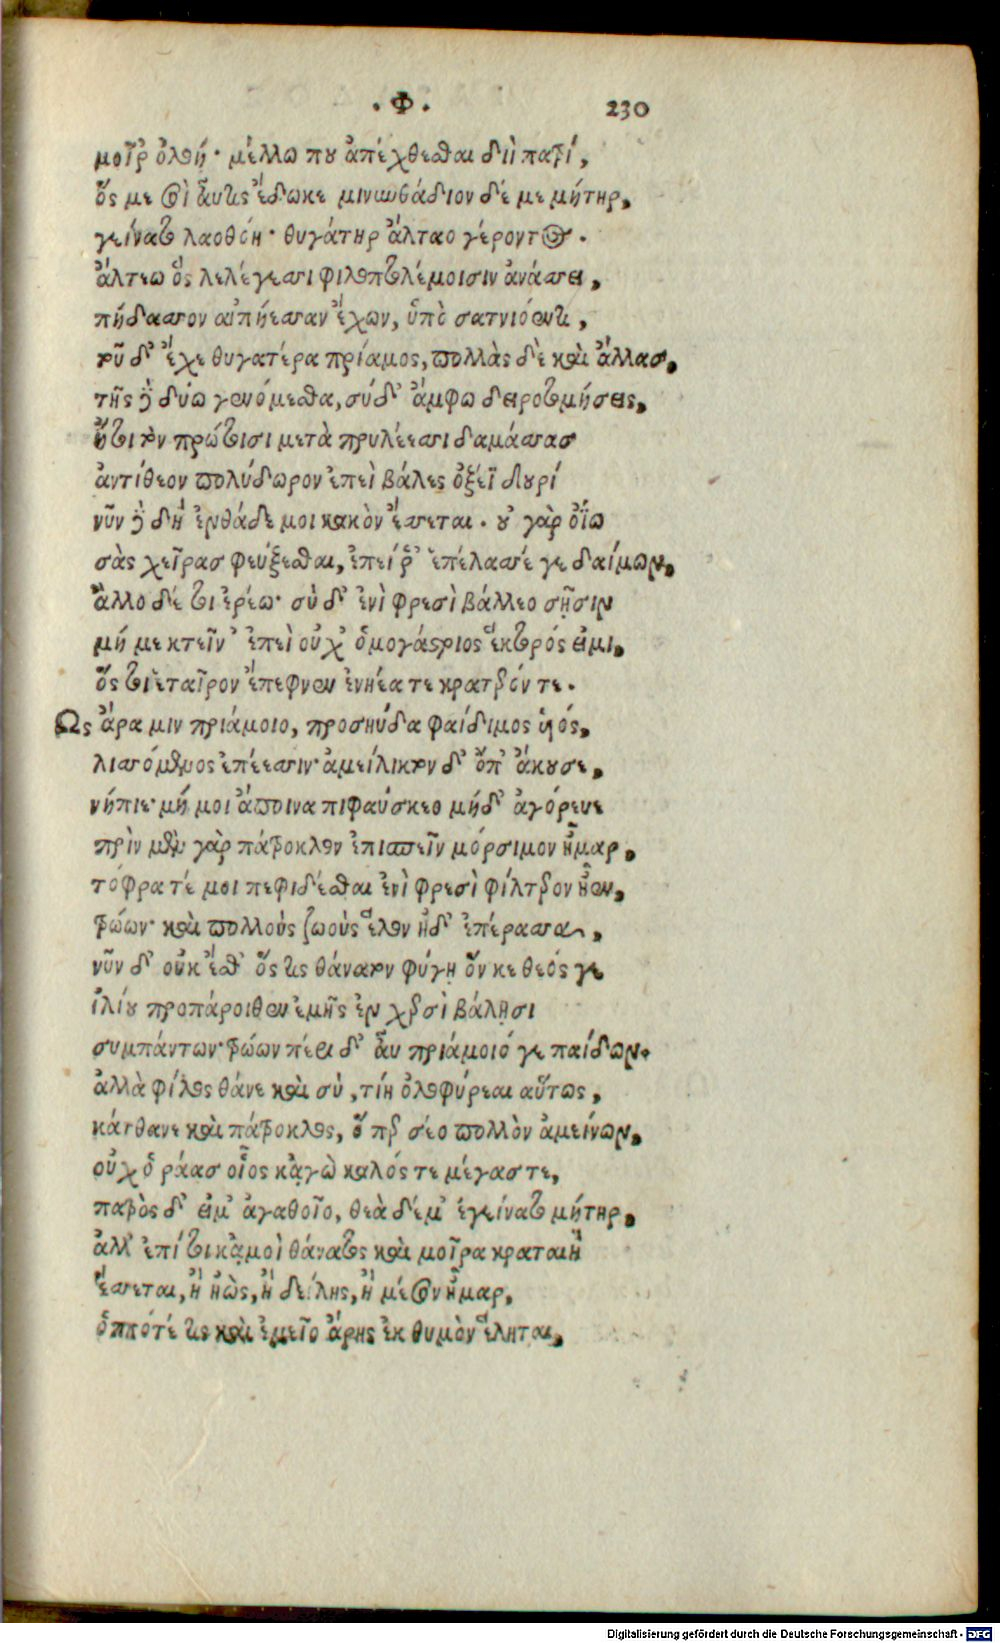 .Φ. 230
μοῖρ ὀλοή· μέλλω που ἀπέχθεσθαι διῒ πατρί,
ὅς με σοὶ αὖτις ἔδωκε μινυνθάδιον δέ με μήτηρ,
γείνατο λαοθόη· θυγάτηρ ἄλταο γέροντος.
ἄλτεω ὃς λελέγεσσι φιλοπτολέμοισιν ἀνάσσει,
πήδασσον αἰπήεσσαν ἔχων, ὑπὸ σατνιόεντι,
τοῦ δ' ἔχε θυγατέρα πρίαμος, πολλὰς δὲ καὶ ἄλλασ,
τῆς δὲ δύω γενόμεσθα, σύ δ' ἄμφω δειροτομήσεις,
ἤτοι τὸν πρώτοισι μετὰ πρυλέεσσι δαμάσσασ
ἀντίθεον πολύδωρον ἐπεὶ βάλες ὀξέϊ δουρί
νῦν δὲ δὴ ἐνθάδε μοι κακὸν ἔσσεται. οὐ γὰρ ὀΐω
σὰς χεῖρασ φεύξεσθαι, ἐπεί ῥ' ἐπέλασσέ γε δαίμων,
ἄλλο δέ τοι ἐρέω· σὺ δ' ἐνὶ φρεσὶ βάλλεο σῇσιν
μή με κτεῖν' ἐπεὶ οὐχ' ὁμογάστριος ἕκτορός εἰμι,
ὅς τοι ἑταῖρον ἔπεφνεν ἐνηέα τε κρατερόν τε.
Ως ἄρα μιν πριάμοιο, προσηύδα φαίδιμος υἱός,
λισσόμενος ἐπέεσσιν· ἀμείλικτον δ' ὄπ' ἄκουσε,
νήπιε· μή μοι ἄποινα πιφαύσκεο μήδ' ἀγόρευε
πρὶν μὲν γὰρ πάτροκλον ἐπισπεῖν μόρσιμον ἦμαρ,
τόφρα τέ μοι πεφιδέσθαι ἐνὶ φρεσὶ φίλτερον ἦεν,
τρώων· καὶ πολλοὺς ζωοὺς ἕλον ἠδ' ἐπέρασσα,
νῦν δ' οὐκ ἔσθ' ὅς τις θάνατον φύγῃ ὅν κε θεός γε
ἰλίου προπάροιθεν ἐμῇς ἐν χερσὶ βάλῃσι
συμπάντων· τρώων πέρι δ' αὖ πριάμοιό γε παίδων.
ἀλλὰ φίλος θάνε καὶ σὺ, τίη ὀλοφύρεαι αὕτως,
κάτθανε καὶ πάτροκλος, ὅ περ σέο πολλὸν ἀμείνων,
οὐχ ὁράασ οἷος κᾀγὼ καλός τε μέγας τε,
πατρὸς δ' εἴμ' ἀγαθοῖο, θεὰ δέ μ' ἐγείνατο μήτηρ,
ἀλλ' ἐπί τοι κᾀμοὶ θάνατος καὶ μοῖρα κραταιὴ
ἔσσεται, ἢ ἠὼς, ἢ δείλης, ἢ μέσον ἦμαρ,
ὁππότέ τις καὶ ἐμεῖο ἄρης ἐκ θυμὸν ἕληται,
Digitalisierung gefördert durch die Deutsche Forschungsgemeinschaft - DFG